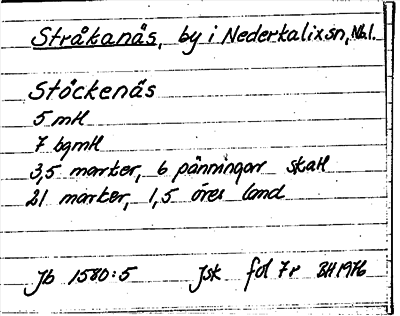 Stråkanäs, by i Nederkalixsn, Nbl.
Stöckenäs
5 mtl
7 bgmtl
3,5 marker, 6 pänningar skatt
21 marker, 1,5 öres land
Jb 1580:5 Jsk fol 7r BH 1976